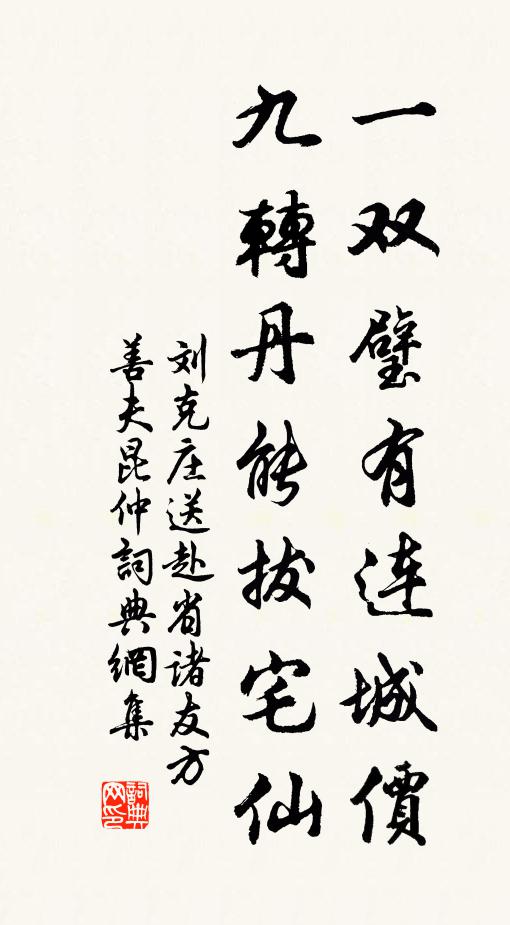 一双璧有连城價
九轉丹能拔宅仙
刘克庄送赴省诸友方
善夫昆仲詞典網集
詞典网印